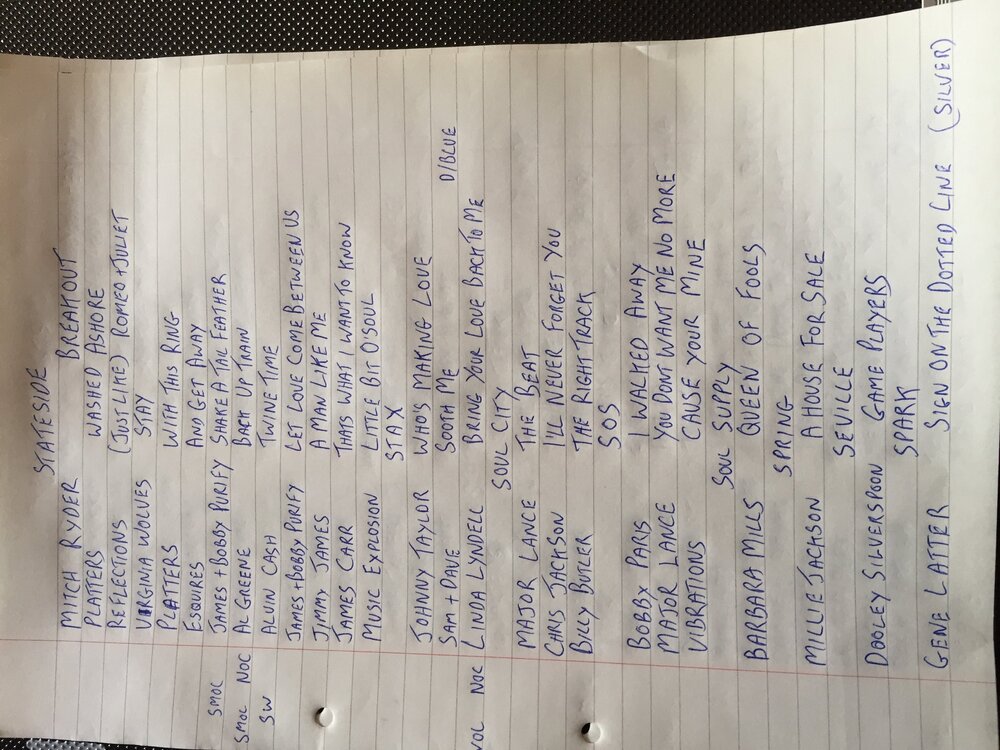 STATESIDE
MITCH RYDER BREAKOUT
PLATTERS WASHED ASHORE
REFLECTIONS (JUST LIKE) ROMEO + JULIET
VIRGINIA WOLVES STAY
PLATTERS WITH THIS RING
ESQUIRES AND GET AWAY
SMOC JAMES + BOBBY PURIFY SHAKE A TAIL FEATHER
SMOC NOC AL GREENE BACK UP TRAIN
SW ALVIN CASH TWINE TIME
JAMES + BOBBY PURIFY LET LOVE COME BETWEEN US
JIMMY JAMES A MAN LIKE ME
JAMES CARR THATS WHAT I WANT TO KNOW
MUSIC EXPLOSION LITTLE BIT O'SOUL
STAX
JOHNNY TAYLOR WHO'S MAKING LOVE
SAM + DAVE SOOTH ME D/BLUE
NOC LINDA LYNDELL BRING YOUR LOVE BACK TO ME
SOUL CITY
MAJOR LANCE THE BEAT
CHRIS JACKSON I'LL NEVER FORGET YOU
BILLY BUTLER THE RIGHT TRACK
SOS
BOBBY PARIS I WALKED AWAY
MAJOR LANCE YOU DONT WANT ME NO MORE
VIBRATIONS CAUSE YOUR MINE
SOUL SUPPLY
BARBARA MILLS QUEEN OF FOOLS
SPRING
MILLIE JACKSON A HOUSE FOR SALE
SEVILLE
DOOLEY SILVERSPOON GAME PLAYERS
SPARK
GENE LATTER SIGN ON THE DOTTED LINE (SILVER)